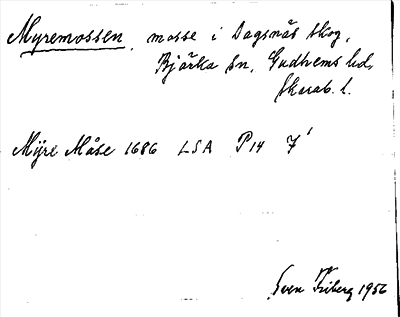 Myremossen, mosse i Dagsnäs skog,
Bjärka sn, Gudhems hd,
Skarab. l.
Mÿre Måse 1686 LSA P14 7¹
Sven Friberg 1956